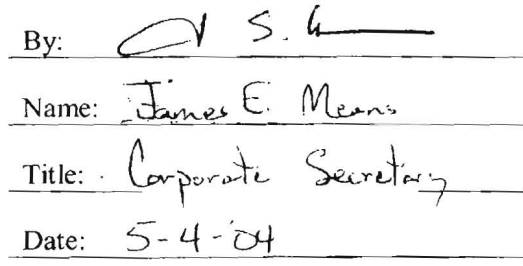 By:
Name: James E. Means
Title: Corporate Secretary
Date: 5-4-04